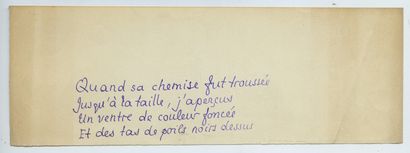 Quand sa chemise fut troussée
Jusqu'à la taille, j'aperçus
Un ventre de couleur foncée
Et des tas de poils noirs dessus